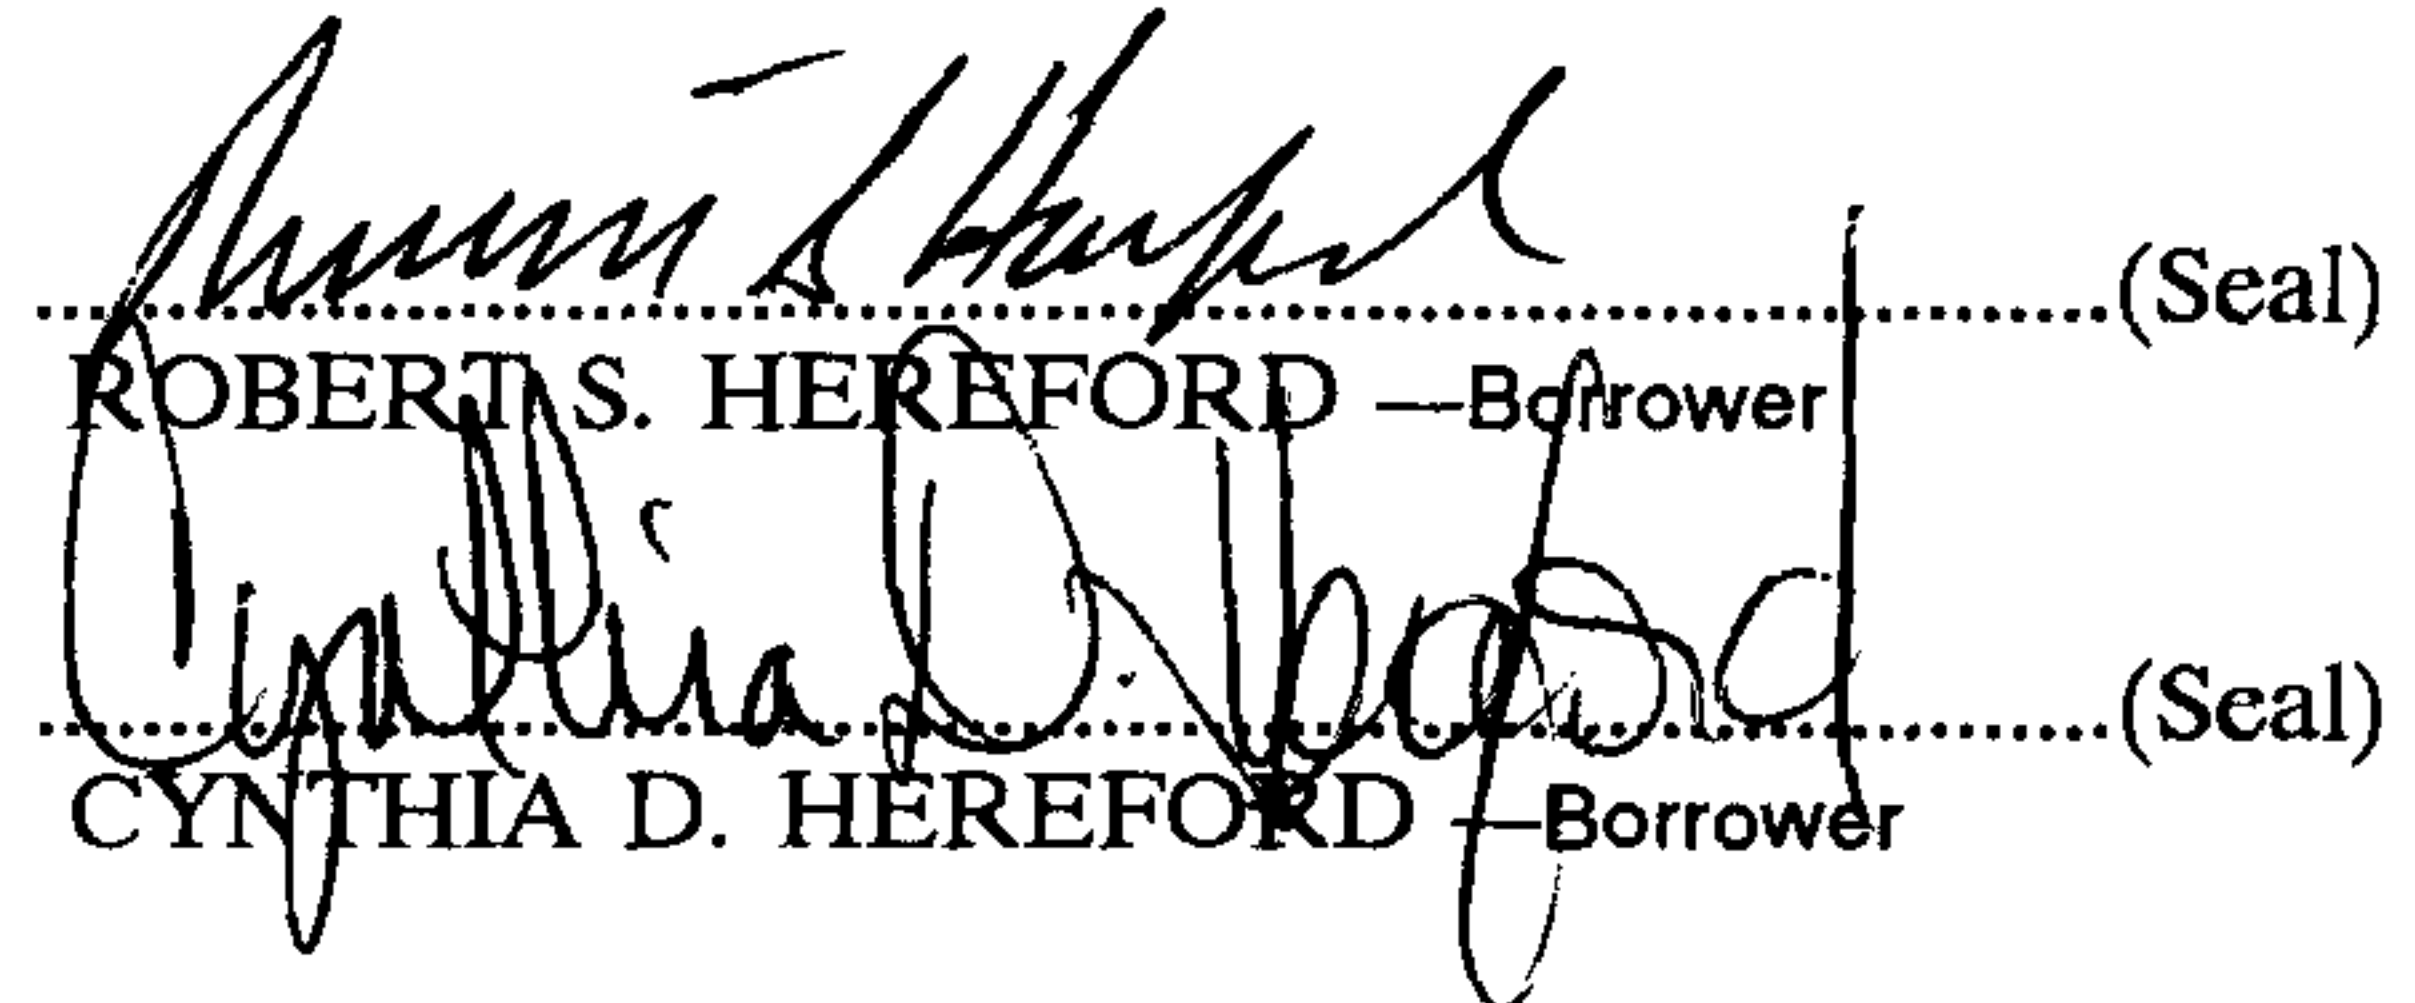 (Seal)
ROBERT S. HEREFORD —Borrower
Cynthia D. Hereford (Seal)
CYNTHIA D. HEREFORD —Borrower